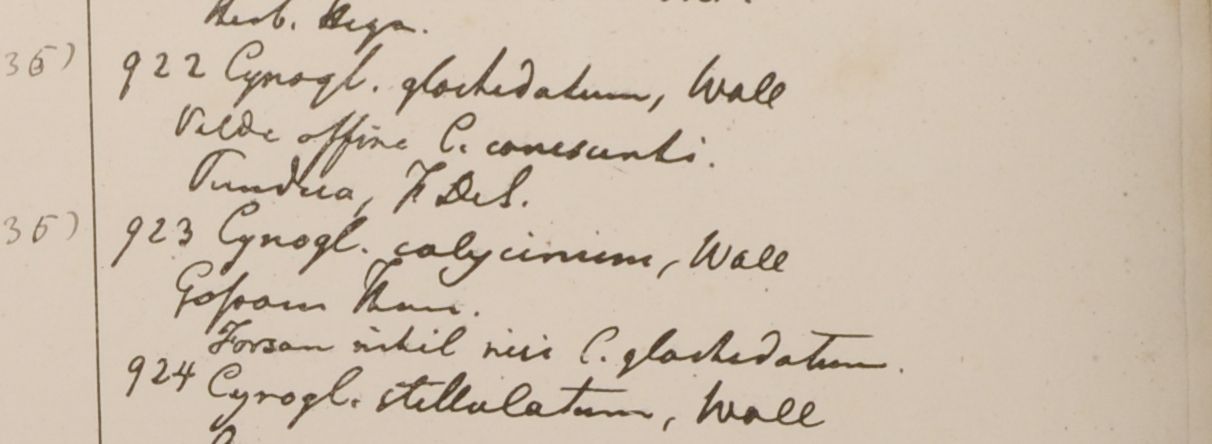 Herb. Heyn.
36) 922 Cynogl. glochidatum, Wall
Valde affine C. canescenti.
Tundua, F De S.
36) 923 Cynogl. calycinum, Wall
Gossam Than.
Forsan nihil nisi C. glochidatum.
924 Cynogl. stellulatum, Wall